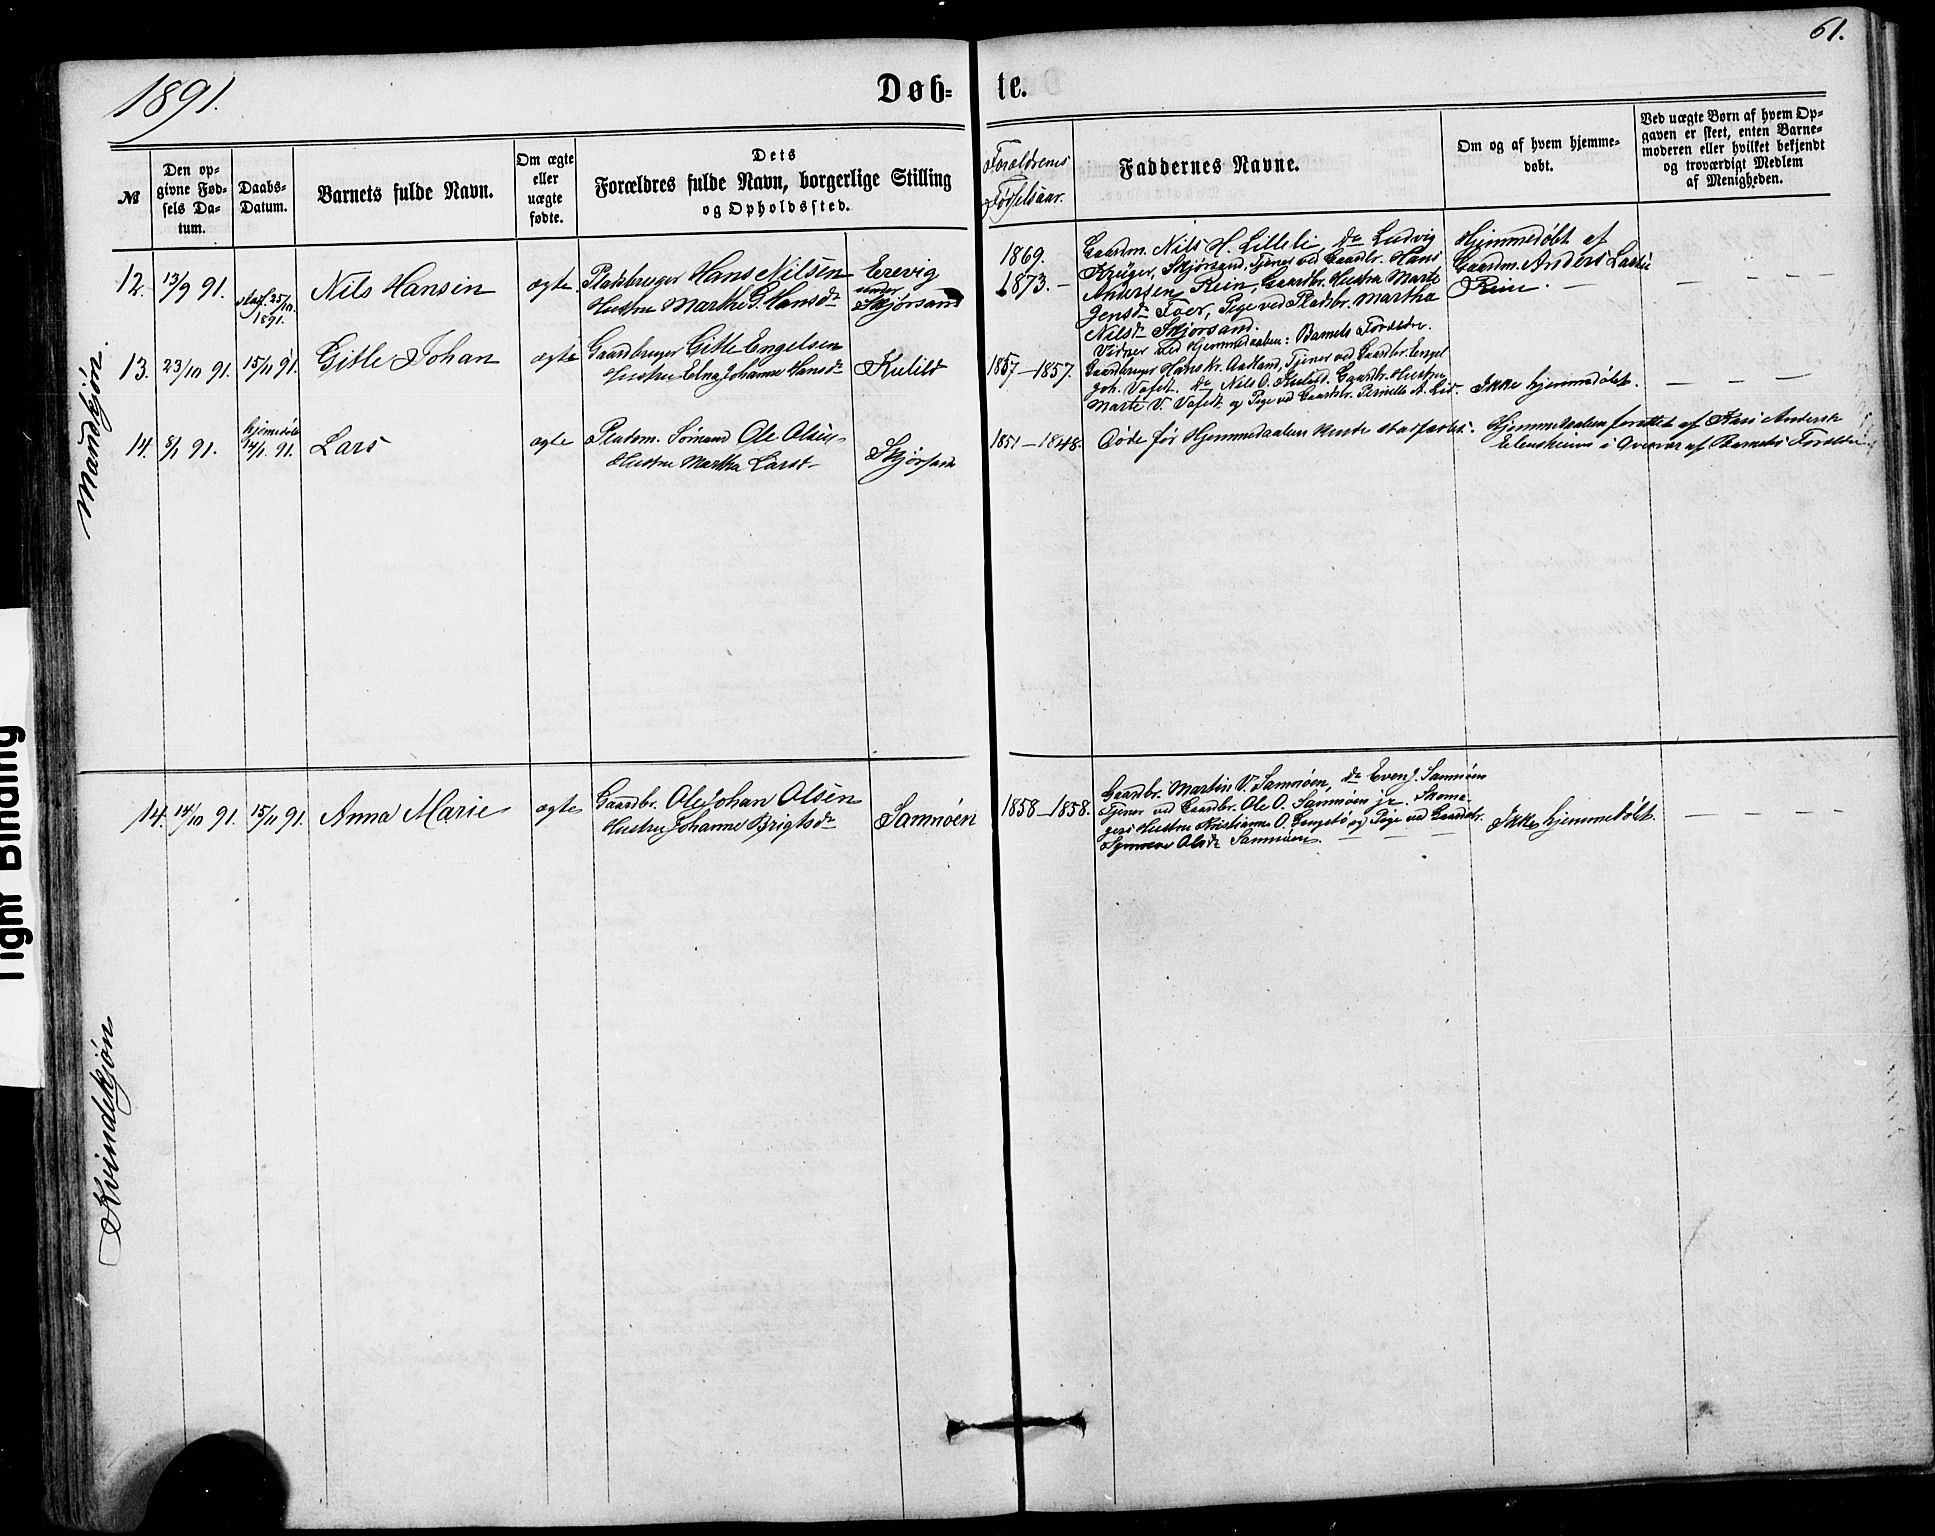 61.
1891.
Døb-
te.
№
Den op-
givne Fød-
sels Da-
tum.
Daabs-
Datum.
Barnets fulde Navn.
Om ægte
eller
uægte
fødte.
Dets
Forældres fulde Navn, borgerlige Stilling
og Opholdssted.
Forældrenes
Fødselsaar.
Faddernes Navne.
Om og af hvem hjemme-
døbt.
Ved uægte Børn af hvem Op-
gaven er skeet, enten Barne-
moderen eller hvilket bekjendt
og troværdigt Medlem
af Menigheden.
Mandkjøn.
12. 13/9 91. staf. 25/10 1891. Nils Hansen ægte. Pladsbruger Hans Nilsen
Hustru Marthe G. Hansdr
Erevig
under
Skjørsand
1869.
1873. —
Gaardm. Nils H. Lillebi, do Ludvig
Krüger, Skjørsand, Tjener ved Gaardbr. Hans
Andersen Rein, Gaardbr. Hustru Marte
Jensdr Foer, Pige ved Pladsbr. Martha
Nilsdr Skjørsand.
Vidner ved Hjemmedaaben: Barnets Forældre.
Hjemmedøbt af
Gaardm. Anders
Rein. —
— — —
13. 23/10 91. 15/11 91. Gitle Johan ægte Gaardbruger Gitle Engelsen
Hustru Elna Johanne Hansdr
Kulild
1857—1857.
Gaardbruger Hans Kr. Aadland, Tjener ved Gaardbr. Engel
Joh. Vaset. do Nils O. Kulild. Gaardbr. Hustru
Marte V. Vaset og Pige ved Gaardbr. Pernille A. Lid.
Ikke hjemmedøbt.
— — — —
14. 8/1 91. hjemmedøbt 14/1 91. Lars ægte Pladsm. Sømand Ole Olsen
Hustru Martha Larsd
Skjørsand
1851—1848.
Døde før Hjemmedaaben kunde stadfæstes.
Hjemmedaaben forrettet af Kari Andersd
i Overvær af Barnets Forældre
Kvindekjøn
14. 14/10 91. 15/11 91. Anna Marie ægte Gaardbr. Ole Johan Olsen
Hustru Johanne Brigtsdr
Samnøen
1858—1858.
Gaardbr. Martin V. Samnøen, do Even J. Samnøen
Tjener ved Gaardbr. Ole O. Samnøen jr. Skoma-
gers Hustru Kristianne O. og Pige ved Gaardbr.
Synneve Olsdr Samnøen. — — —
Ikke hjemmedøbt.
— — — —
Tight Binding